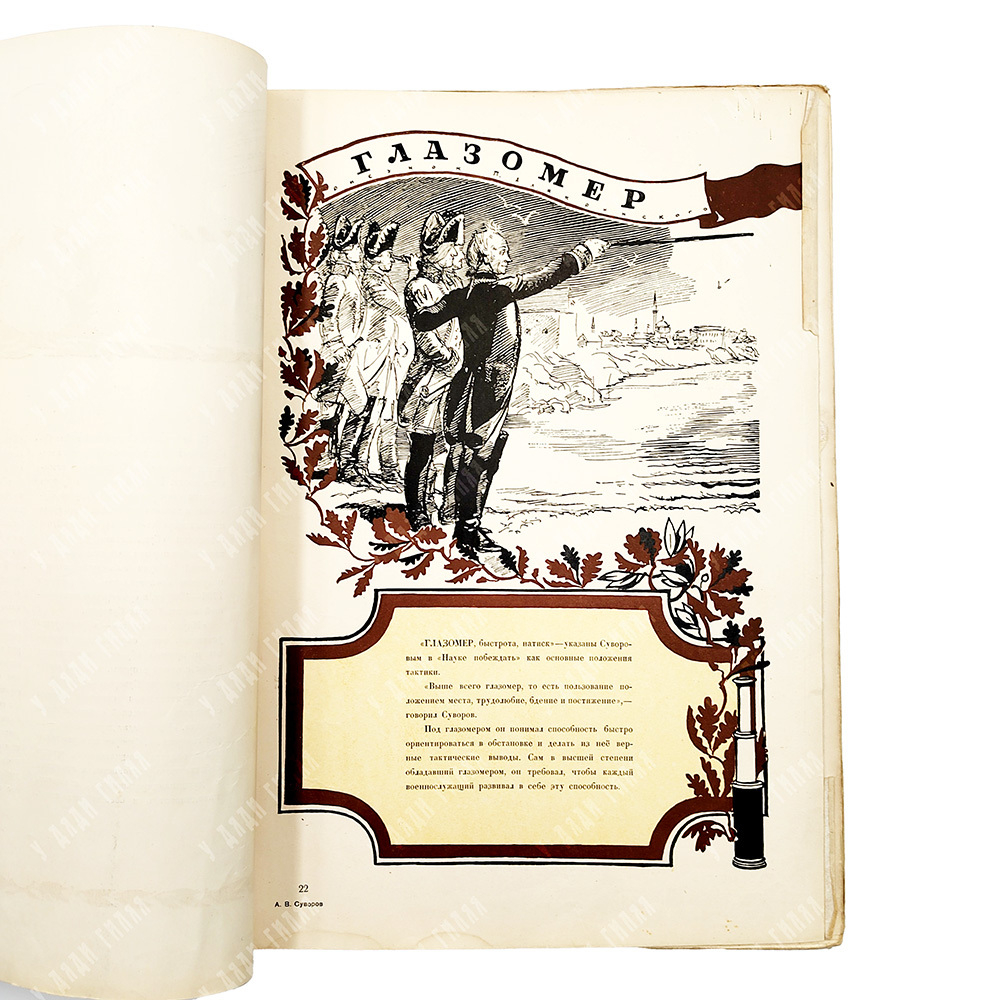 ГЛАЗОМЕР
«ГЛАЗОМЕР, быстрота, натиск»—указаны Суворо-
вым в «Науке побеждать» как основные положения
тактики.
«Выше всего глазомер, то есть пользование по-
ложением места, трудолюбие, бдение и постижение»,—
говорил Суворов.
Под глазомером он понимал способность быстро
ориентироваться в обстановке и делать из неё вер-
ные тактические выводы. Сам в высшей степени
обладавший глазомером, он требовал, чтобы каждый
военнослужащий развивал в себе эту способность.
22
А. В. Суворов